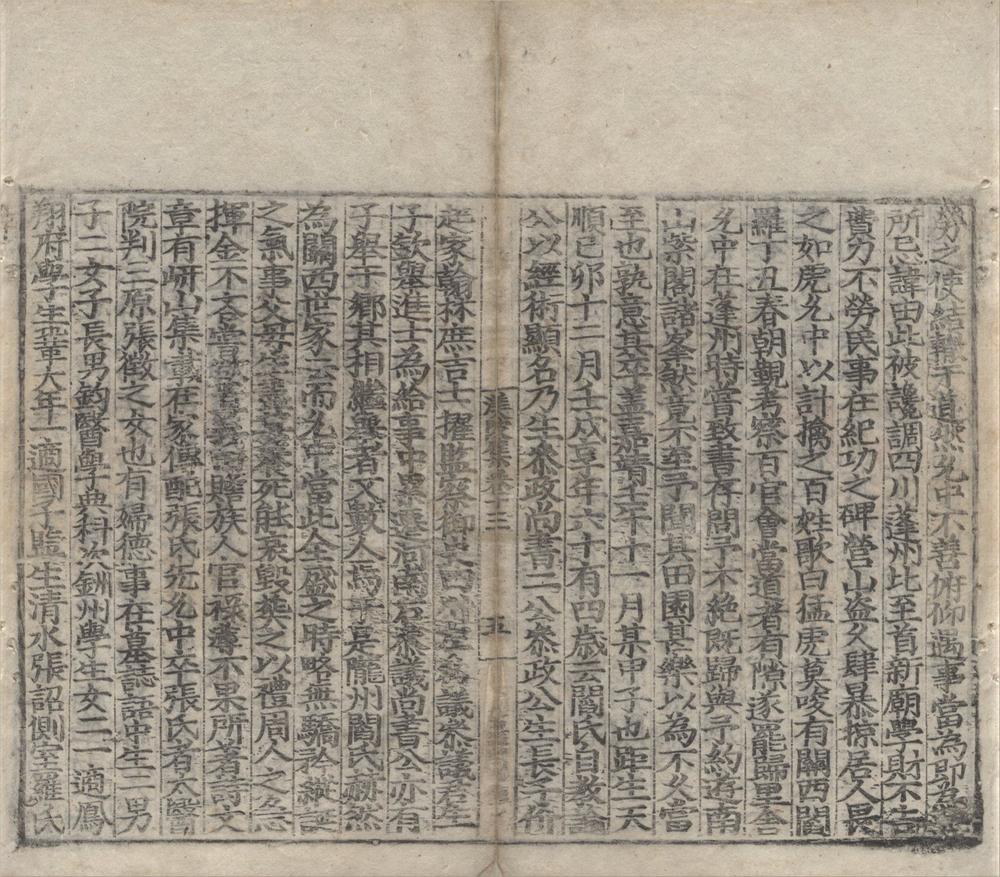 勞之使結轍于道然允中不善俯仰遇事當為即為
所忌諱由此被讒調四川蓬州比至首新廟學財不告
費力不勞民事在紀功之碑營山盜久肆暴掠居人畏
之如虎允中以計擒之百姓歌曰猛虎莫唆有關西閻
羅丁丑春朝覲考察百官會當道者有隙遂罷歸里舍
允中在蓬州時嘗致書存問予不絕既歸與予約遊南
山紫閣諸峯然竟不至予聞其田園甚樂以為不久當
至也孰意其卒盖嘉靖壬午十一月某甲子也距生天
順己卯十二月壬戌享年六十有四歲云閻氏自教諭
公以經術顯名乃生叅政尚書二公叅政公生長子价
渼陂集卷三
五
起家翰林庶吉士擢監察御史四川左叅議叅議君生
子欽舉進士為給事中累遷河南右叅議尚書公亦有
子舉于鄉其相繼舉者又數人焉于是隴州閻氏裒然
為關西世家云而允中當此全盛之時略無驕矜縱誕
之氣事父母生養死能哀毀葬之以禮周人之急
揮金不吝嘗欲置義田贍族人官祿薄不果所著詩文
章有岍山集載在家傳配張氏先允中卒張氏者太醫
院判三原張徵之女也有婦德事在墓誌語中生二男
子二女子長男鈞醫學典科次釧州學生女二一適鳳
翔府學生董大年一適國子監生清水張詔側室羅氏